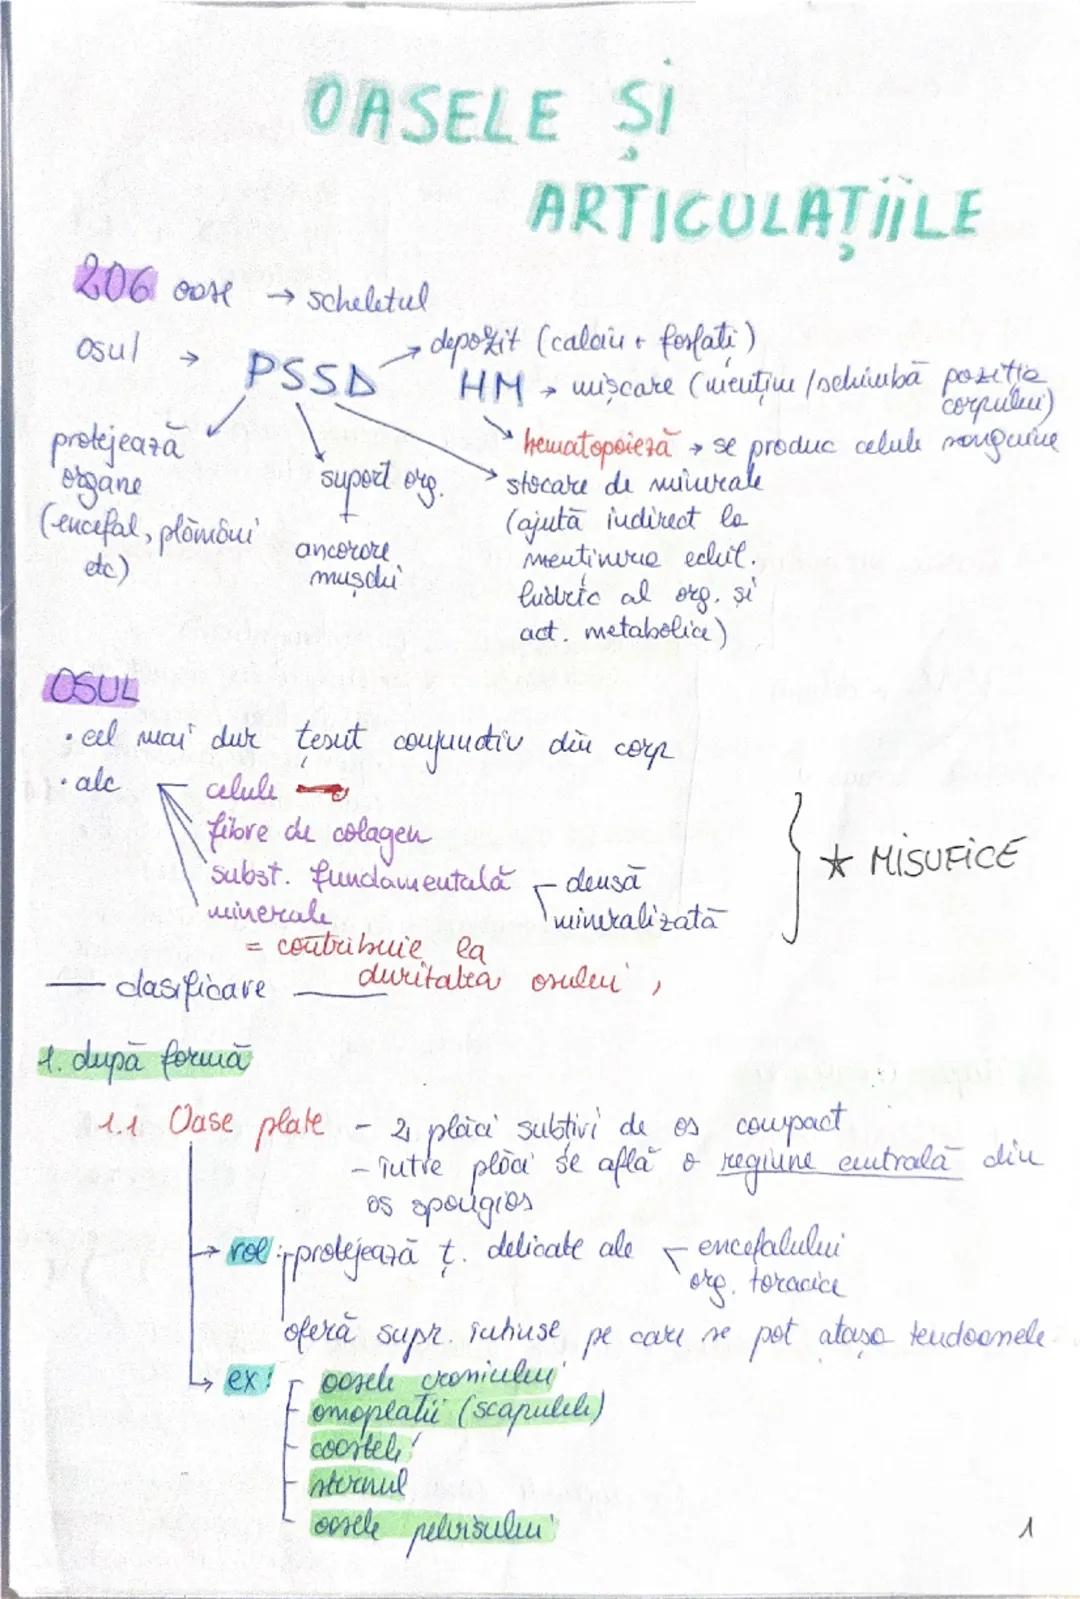 OASELE ȘI
ARTICULAȚIILE
206 oase → scheletul
osul → PSSD HM
→ depozit (calciu + fosfați)
→ mișcare (menține / schimbă poziția corpului)
→ hematopoieză → se produc celule sanguine
protejează
organe
(encefal, plămâni
etc)
suport org.
+
ancorare
mușchi
stocare de minerale
(ajută indirect la
menținerea echil.
hidric al org. și
act. metabolice)
OSUL
• cel mai dur țesut conjunctiv din corp
• alc
celule
fibre de colagen
subst. fundamentală
densă
mineralizată
minerale
= contribuie la
duritatea osului
} ★ MISUFICE
— clasificare —
1. după formă
1.1 Oase plate - 2 plăci subțiri de os compact
- între plăci se află o regiune centrală din
os spongios
→ rol: protejează ț. delicate ale
encefalului
org. toracice
oferă supr. întinse pe care se pot atașa tendoanele
→ ex:
oasele craniului
omoplații (scapulele)
coastele
sternul
oasele pelvisului
1